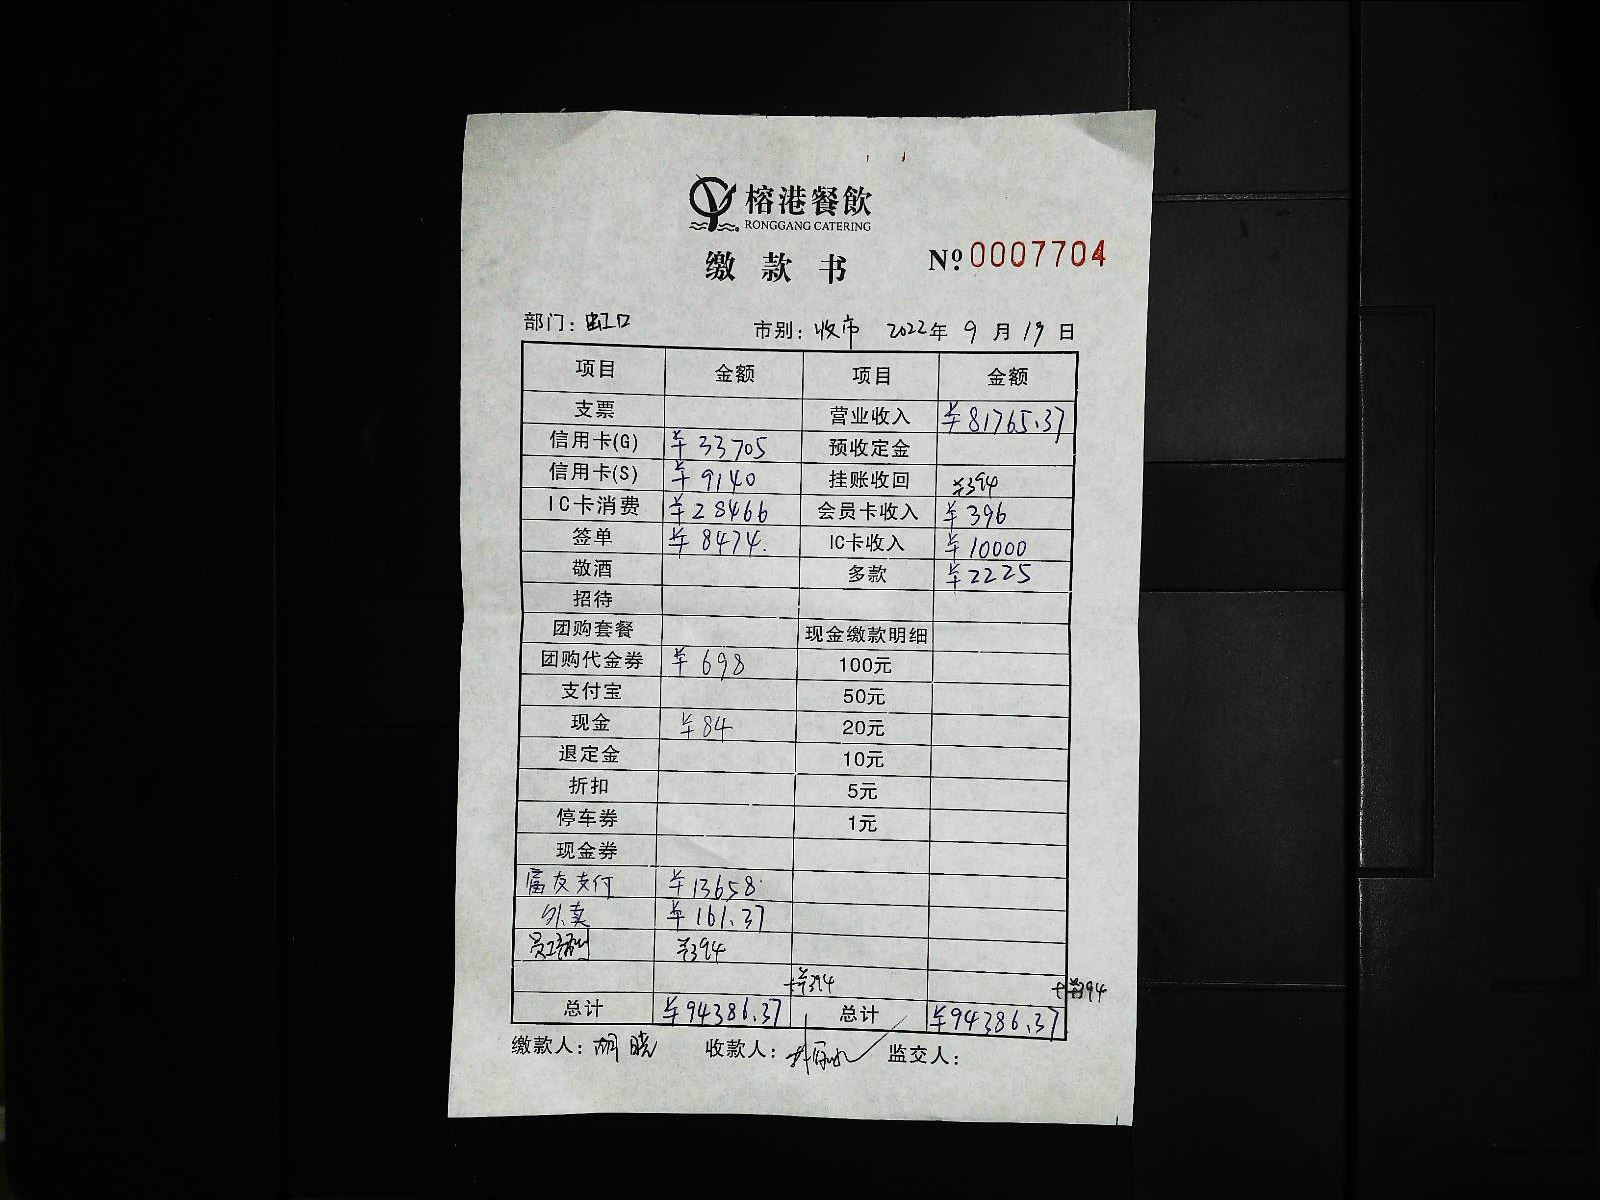 榕港餐飲
RONGGANG CATERING
缴款书 № 0007704
部门：虹口 市别：收市 2022年 9月 19日
项目 金额 项目 金额
支票 营业收入 ¥81765.37
信用卡(G) ¥33705 预收定金
信用卡(S) ¥9140 挂账收回 ¥394
IC卡消费 ¥28466 会员卡收入 ¥396
签单 ¥8474. IC卡收入 ¥10000
敬酒 多款 ¥2225
招待
团购套餐 现金缴款明细
团购代金券 ¥698 100元
支付宝 50元
现金 ¥84 20元
退定金 10元
折扣 5元
停车券 1元
现金券
富友支付 ¥13658
外卖 ¥161.37
员工福利 ¥394
+¥394 +¥394
总计 ¥94386.37 总计 ¥94386.37
缴款人：胡晓 收款人： 监交人：